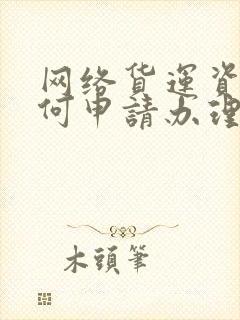 网络货运资
何申請办理
木頭筆